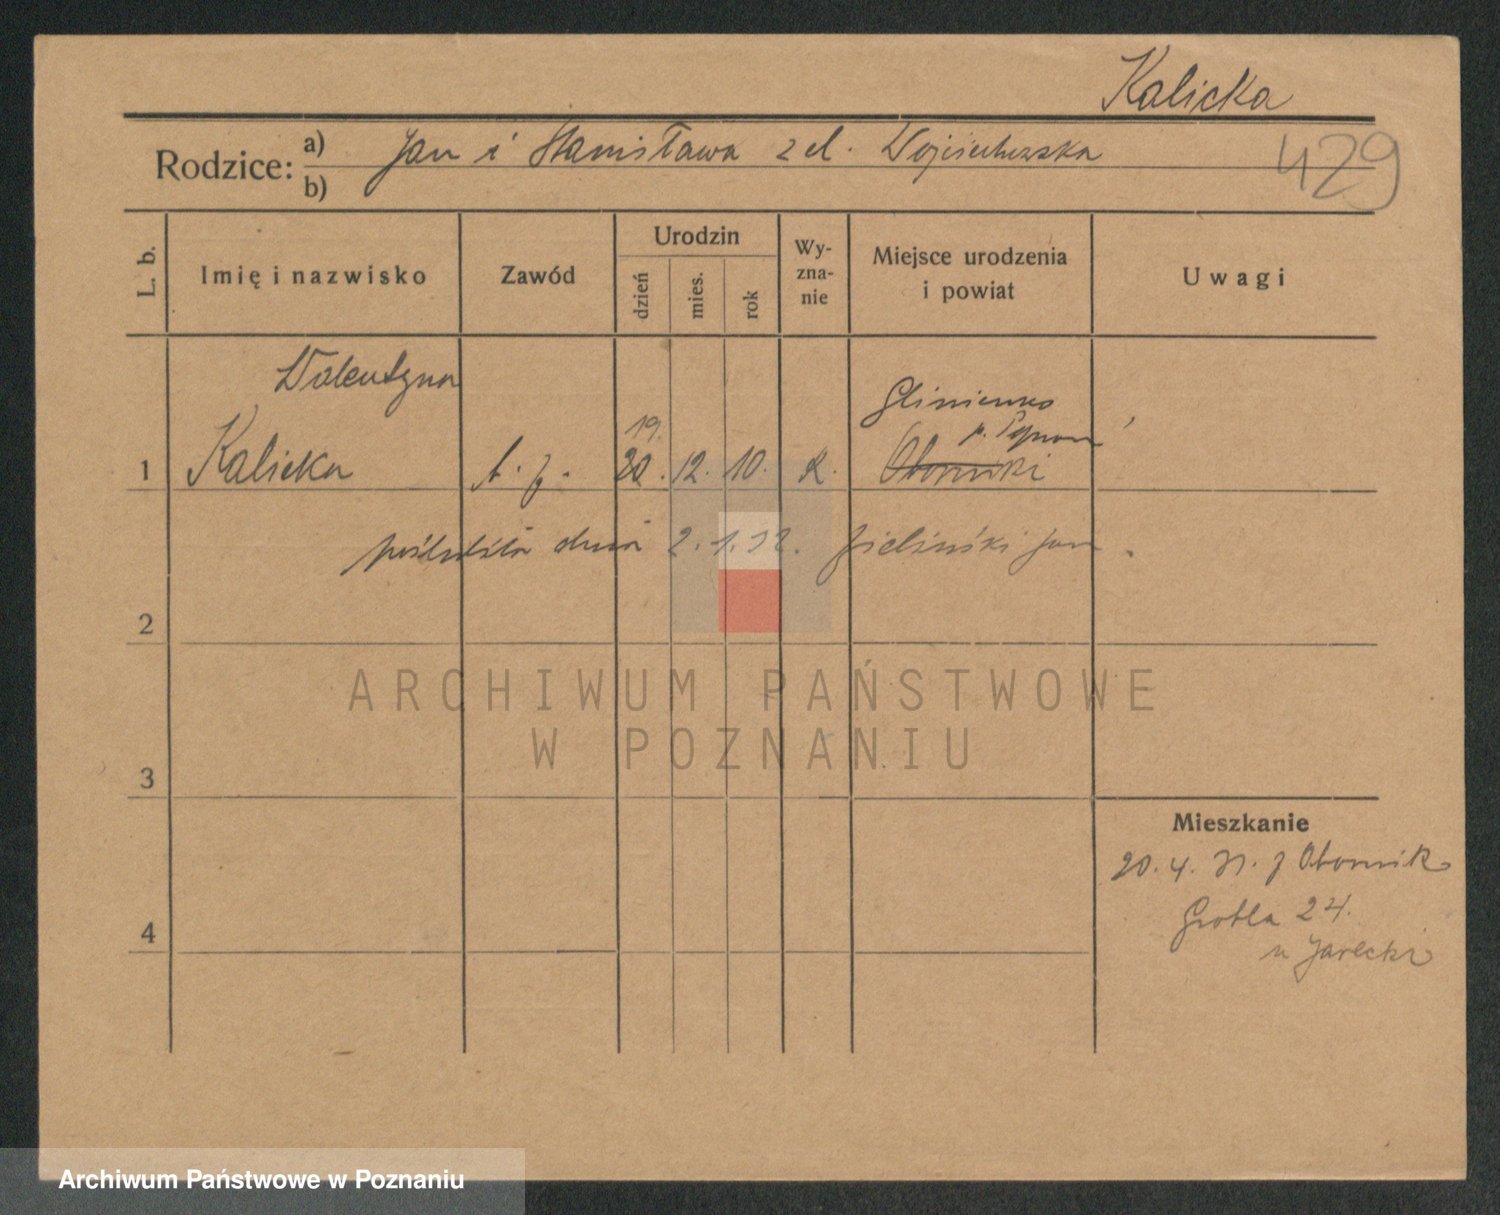 Kalicka
429
Rodzice: a) Jan i Stanisława z d. Wojciechowska
b)
L. b.
Imię i nazwisko
Zawód
Urodzin
dzień
mies.
rok
Wy-
zna-
nie
Miejsce urodzenia
i powiat
Uwagi
Walentyna
Glinienko
19.
p. Poznań
1 Kalicka 20. 12. 10. Oborniki
poślubiła dnia 2. 1. 32. Zieliński Jan.
2
ARCHIWUM PAŃSTWOWE
W POZNANIU
3
Mieszkanie
20. 4. 31. z Obornik
Grobla 24.
u Jarecki
4
Archiwum Państwowe w Poznaniu